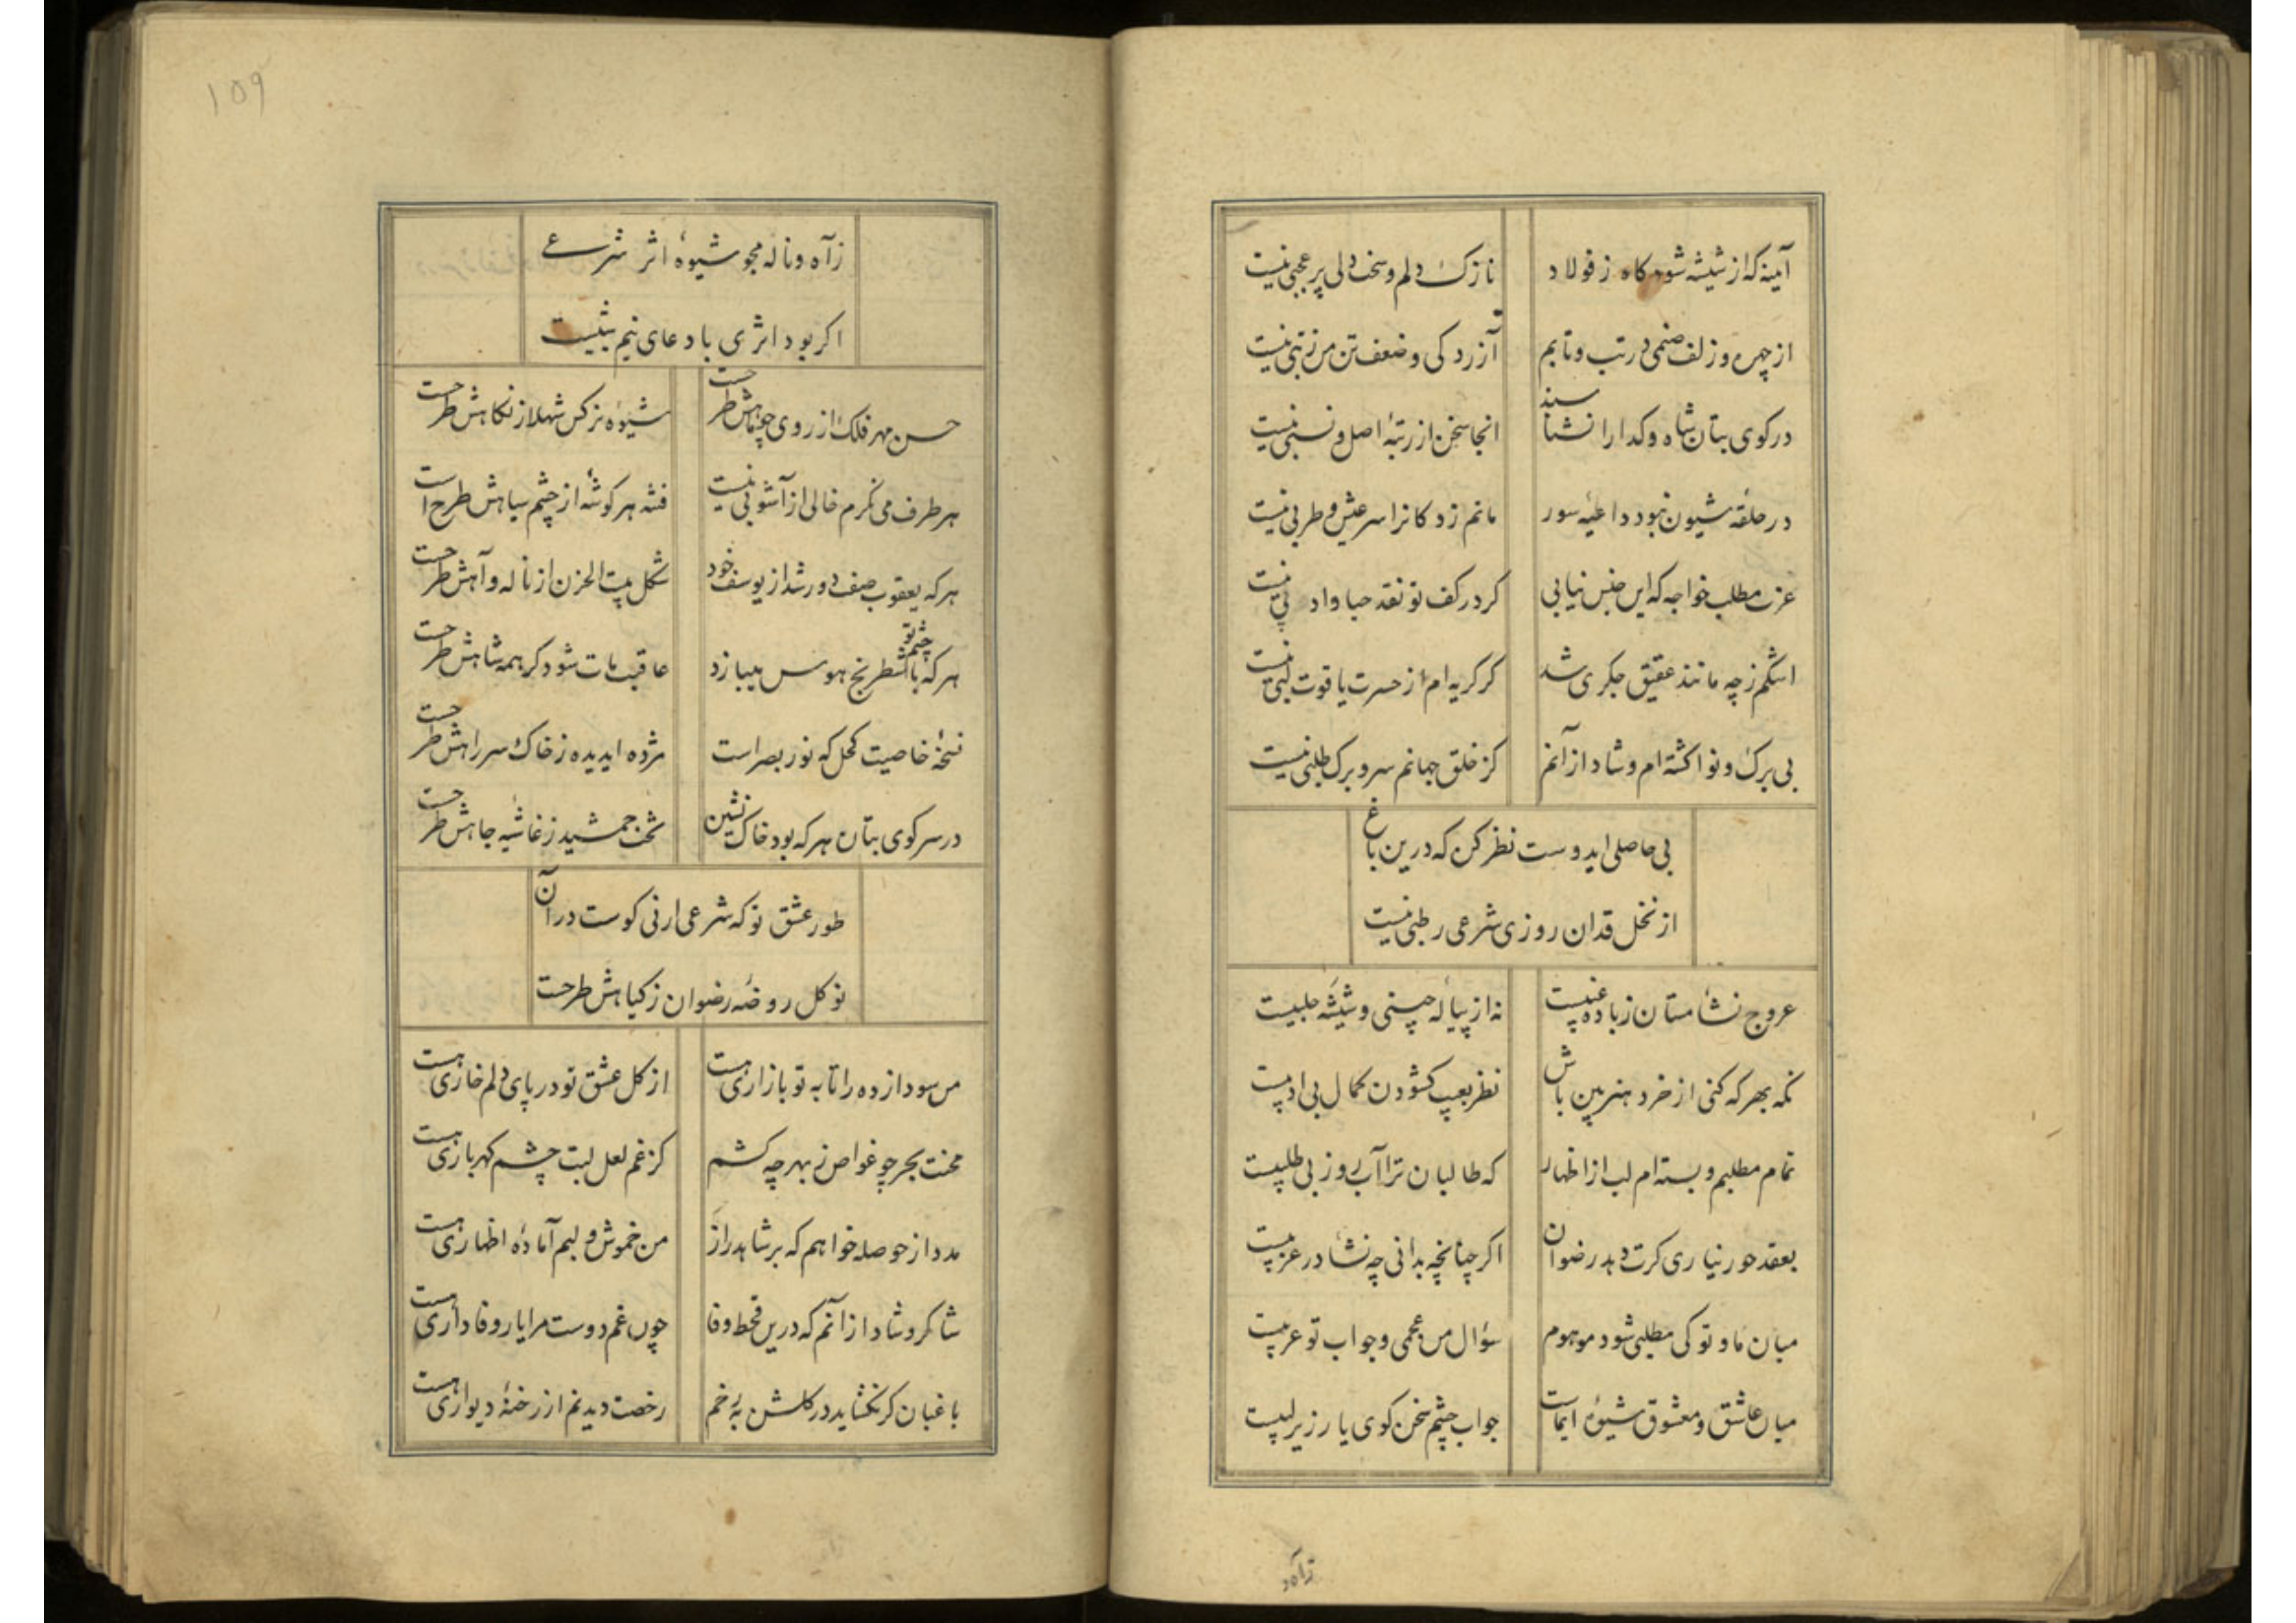 آینه که از شیشه شود کاه ز فولاد نازک دلم و سخت دلی پر عجبی نیست
از چهره و زلف صنمی در تب و تابم آزردکی و ضعف تن من ز تبی نیست
در کوی بتان شاه و کدا را نشناسند انجا سخن از رتبهٔ اصل و نسبی نیست
در حلقه شیون نبود داعیهٔ سور ماتم زدکانرا سر عیش و طربی نیست
عزت مطلب خواجه که این جنس نیابی کر در کف تو نقد حیا و ادبی نیست
اشکم ز چه مانند عقیق جکری شد کر کریه ام از حسرت یاقوت لبی نیست
بی برک و نوا کشته ام و شاد از آنم کز خلق جهانم سر و برک طلبی نیست
بی حاصلی ایدوست نظر کن که درین باغ
از نخل قدان روزی شرعی رطبی نیست
عروج نشأ مستان ز باده عنبیست نه از پیاله چینی و شیشه حلبیست
نکه بهر که کنی از خرد هنر بین باش نظر بعیب کشودن کمال بی ادبیست
تمام مطلبم و بسته ام لب از اظهار که طالبان ترا آبرو ز بی طلبیست
بعقد حور نیاری کرت دهد رضوان اکر چنانچه بدانی چه نشأ در عزبیست
میان ما و تو کی مطلبی شود موهوم سؤال من عجمی و جواب تو عربیست
میان عاشق و معشوق شیوهٔ ایماست جواب چشم سخن کوی یار زیر لبیست
ز آه و
۱۵۹
ز آه و ناله مجو شیوهٔ اثر شرعے
اکر بود اثری با دعای نیم شبیست
حسن مهر فلک از روی چو ماهش طرحست شیوه نرکس شهلا ز نکاهش طرحست
هر طرف می نکرم خالی از آشوبی نیست فتنه هر کوشه از چشم سیاهش طرح است
هر که یعقوب صفت دور شد از یوسف خود شکل بیت الحزن از ناله و آهش طرحست
هر که با چشم تو شطرنج هوس میبازد عاقبت مات شود کر همه شاهش طرحست
نسخهٔ خاصیت کحل که نور بصر است مژده ایدیده ز خاک سر راهش طرحست
در سر کوی بتان هر که بود خاک نشین تخت جمشید ز غاشیه جاهش طرحست
طور عشق تو که شرعی ارنی کوست در آن
نو کل روضه رضوان ز کیاهش طرحست
من سودازده را تا به تو بازاری هست از کل عشق تو در پای دلم خاری هست
محنت بحر چو غواص ز بهر چه کشم کز غم لعل لبت چشم کهرباری هست
مدد از حوصله خواهم که بر شاهد راز من خموش و لبم آمادهٔ اظهاری هست
شاکر و شاد از آنم که درین قحط وفا چون غم دوست مرا یار وفاداری هست
باغبان کر نکشاید در کلشن به رخم رخصت دیدنم از رخنهٔ دیواری هست